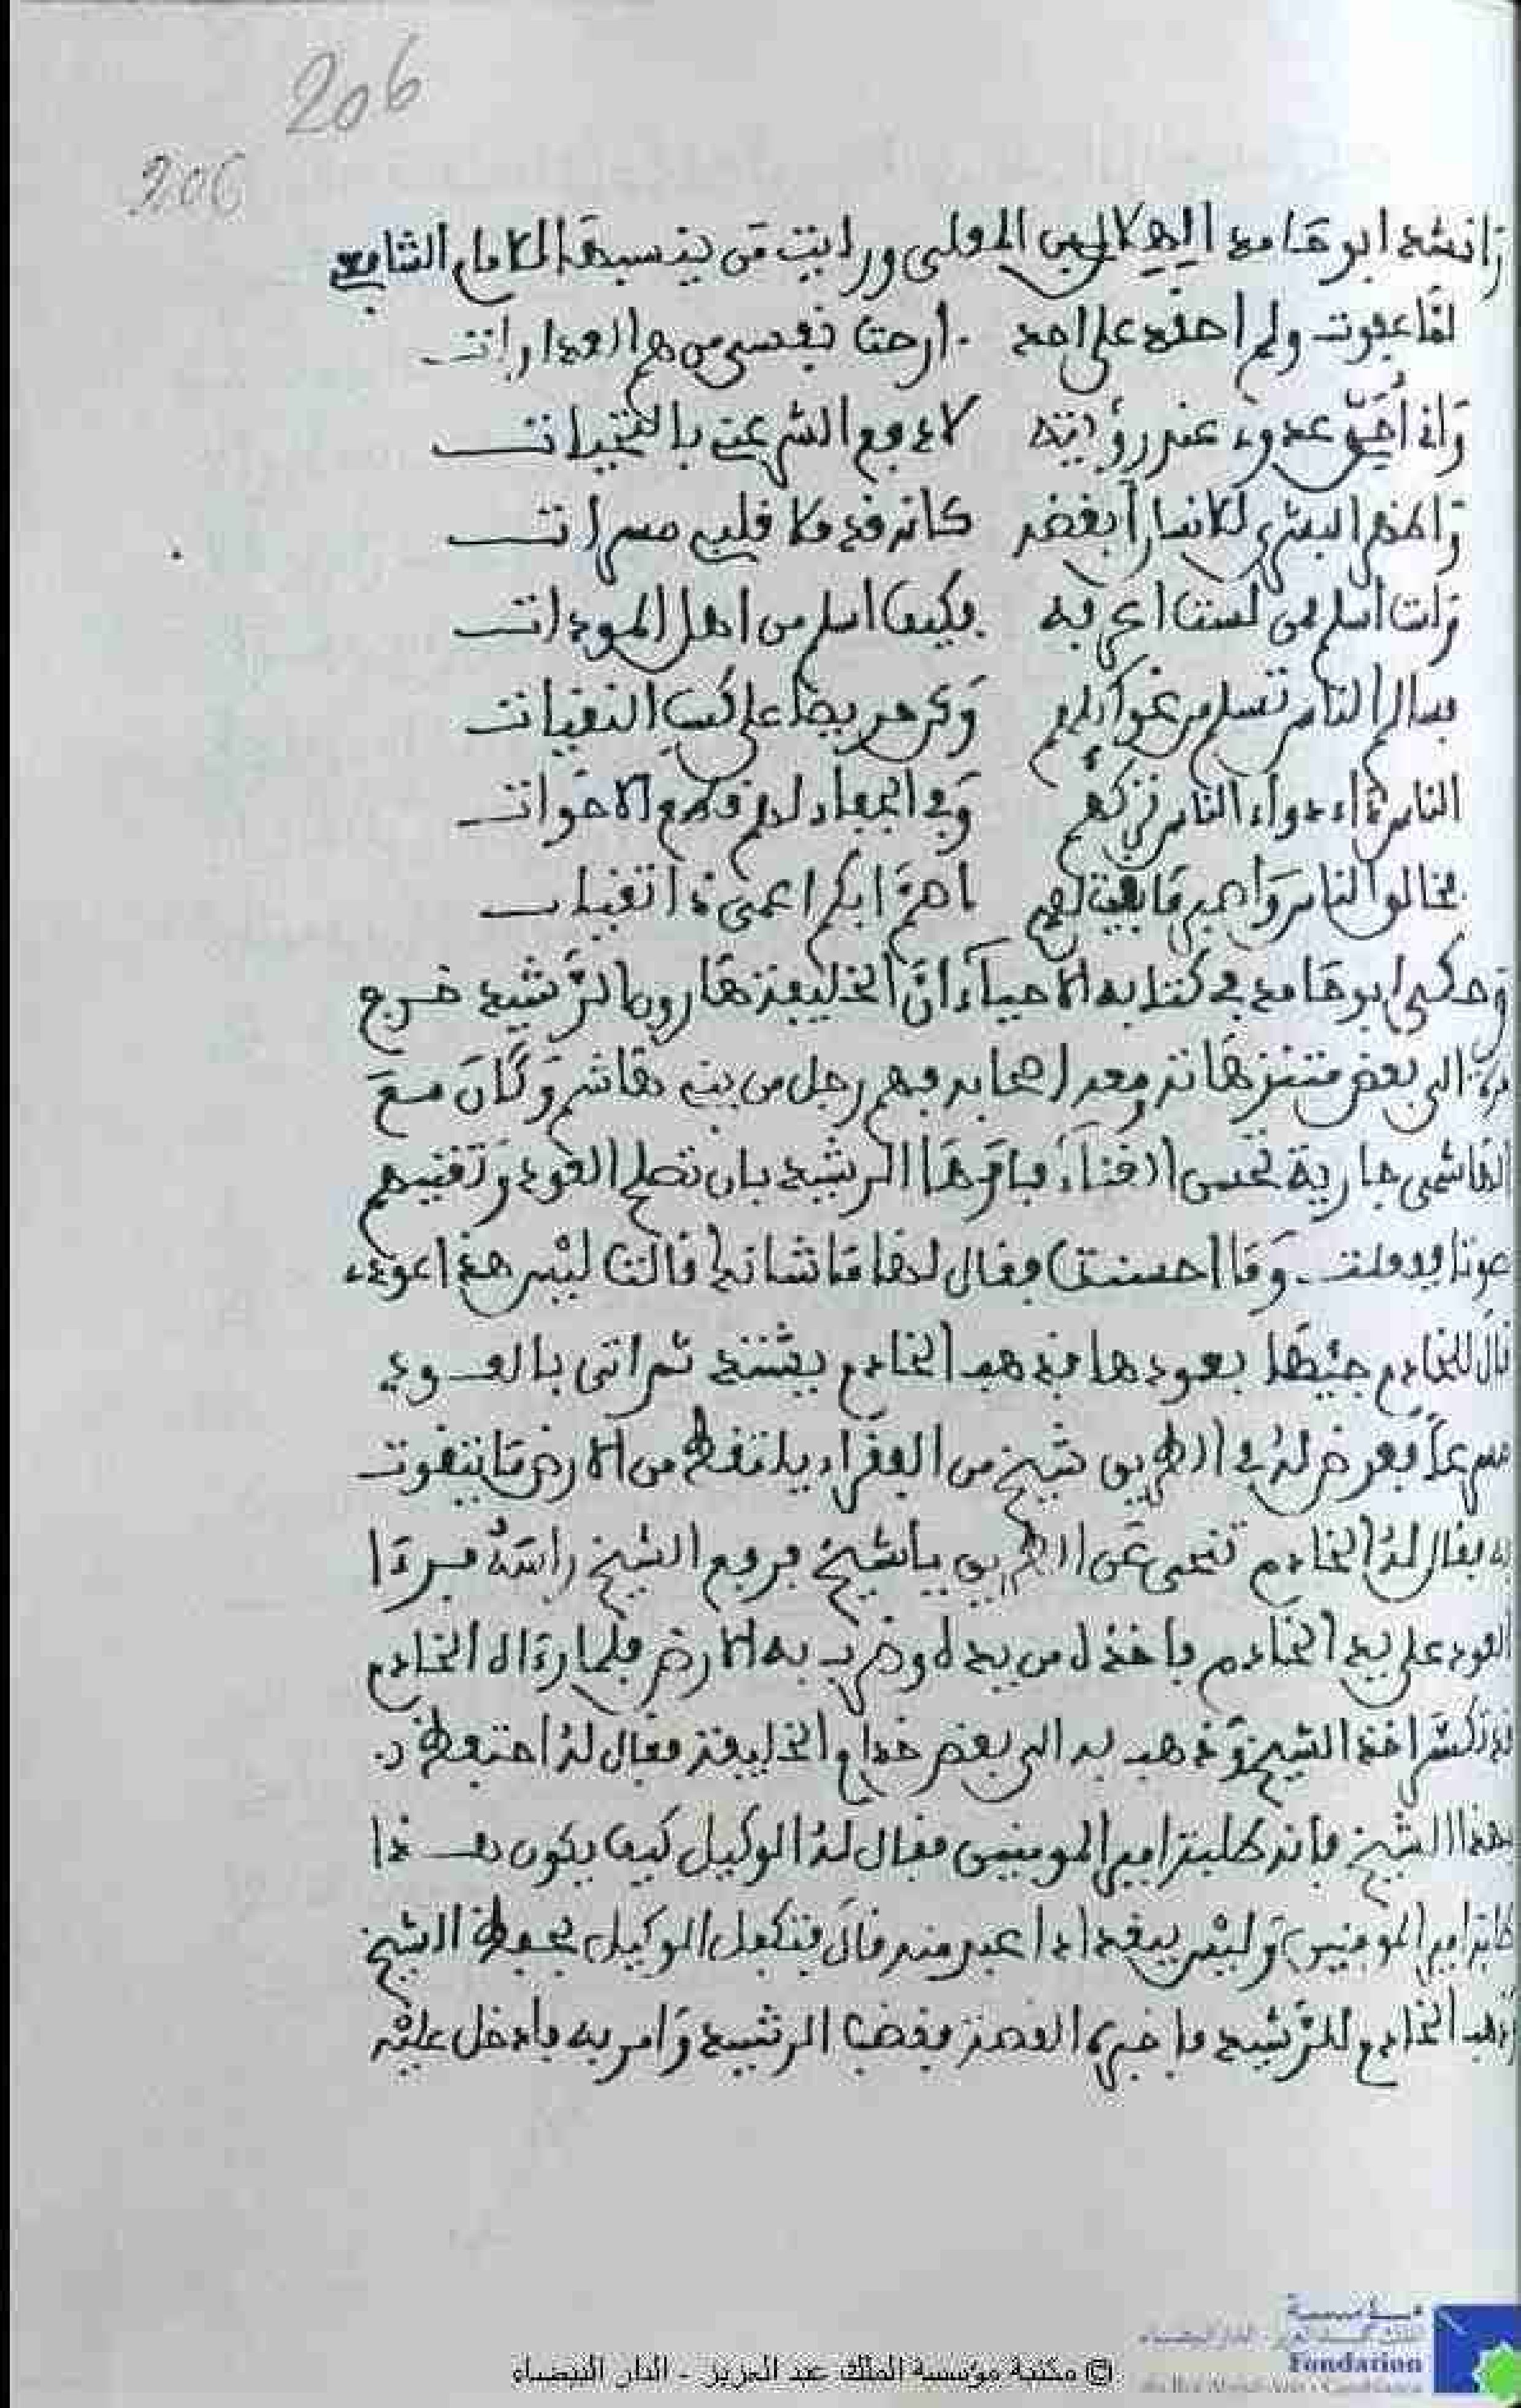 206
206
وانشد ابو حامد الهلالي المولى ورايت من ينسبها للامام الشافعي
لما عفوت ولم احقد على احد ارحت نفسي من هم العداوات
واني احيي عدوي عند رؤيته لادفع الشر عني بالتحيات
واظهر البشر للانسان أبغضه كانه قد ملا قلبي مسرات
ولست اسلم ممن لست اعرفه فكيف اسلم من اهل المودات
فسالم الناس تسلم من غوائلهم وكن حريصا على كسب التقيات
الناس داء دواء الناس تركهم وفي الجفاء لهم قطع الاخوات
فخالق الناس واصبر ما بقيت لهم اصم ابكم اعمى ذا تقيات
وحكى ابو حامد في كتابه الاحياء ان الخليفة هارون الرشيد خرج
مرة الى بعض متنزهاته ومعه اصحابه فيهم رجل من بني هاشم وكان مع
الهاشمي جارية تحسن الغناء فامرها الرشيد بان تصلح العود وتغنيهم
عوتا ففعلت وما احسنت فقال لها ما شانك قالت ليس هذا عودي
قال للخادم جئها بعودها فذهب الخادم يشتد ثم اتى بالعود
مسرعا فعرض له في الطريق شيخ من الفقراء يلتقط من الارض ما يتقوت
به فقال له الخادم تنحى عن الطريق يا شيخ فرفع الشيخ راسه فرءا
العود على يد الخادم فاخذه من يده وضرب به الارض فلما رءاه الخادم
قد تكسر اخذ الشيخ وذهب به الى بعض خدام الخليفة فقال له احتفظ
بهذا الشيخ فانه طلبة امير المومنين فقال له الوكيل كيف يكون هـذا
طلبة امير المومنين وليس ببغداد اعبد منه قال فتكفل الوكيل بحفظ الشيخ
وذهب الخادم للرشيد فاخبره القصة فغضب الرشيد وامر به فادخل عليه
© مكتبة مؤسسة الملك عبد العزيز - الدار البيضاء
مؤسسة
Fondation